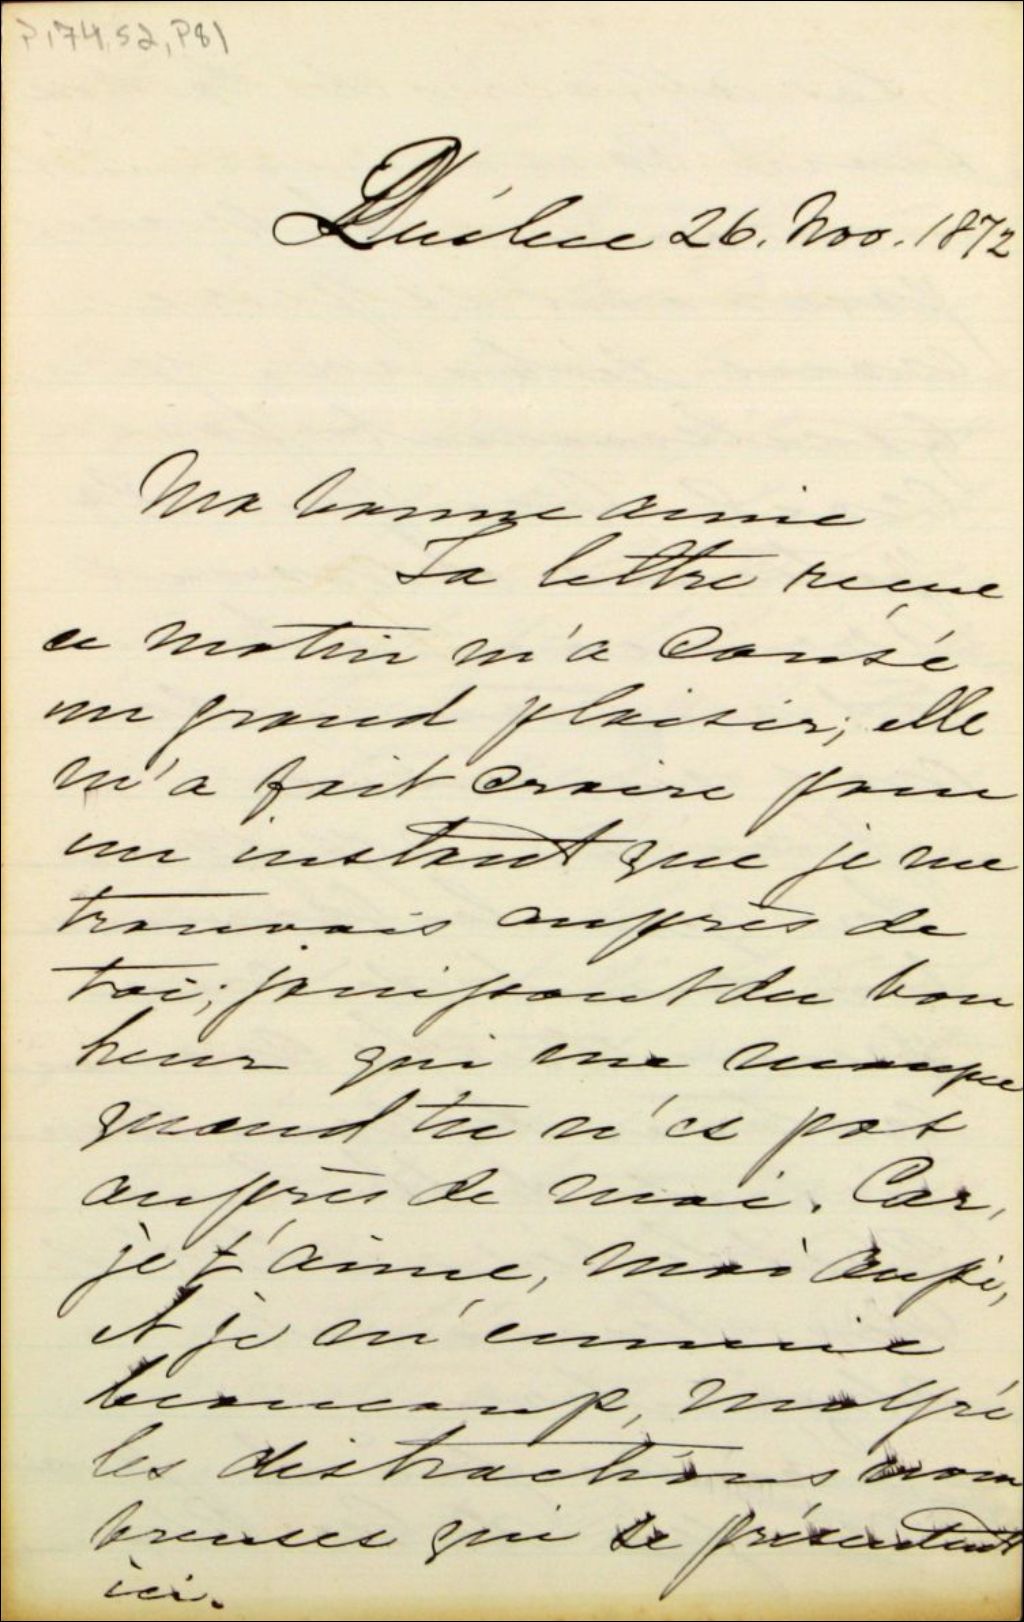 P174,S2,P81
Québec 26. Nov. 1872
Ma bonne amie
Ta lettre reçue
ce matin m'a causé
un grand plaisir; elle
m'a fait croire pour
un instant que je me
trouvais auprès de
toi; jouissant du bon
heur qui me manque
quand tu n'es pas
auprès de moi. Car,
je t'aime, moi aussi,
et je m'ennuie
beaucoup, malgré
les distractions nom
breuses qui se présentent
ici.